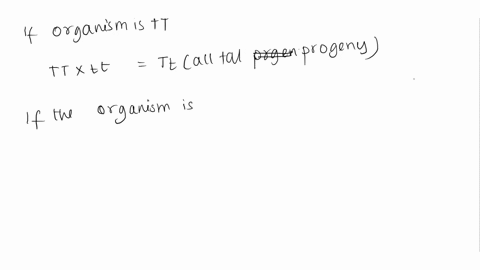 If organism is TT
TT x tt = Tt (all tal progeny)
If the organism is